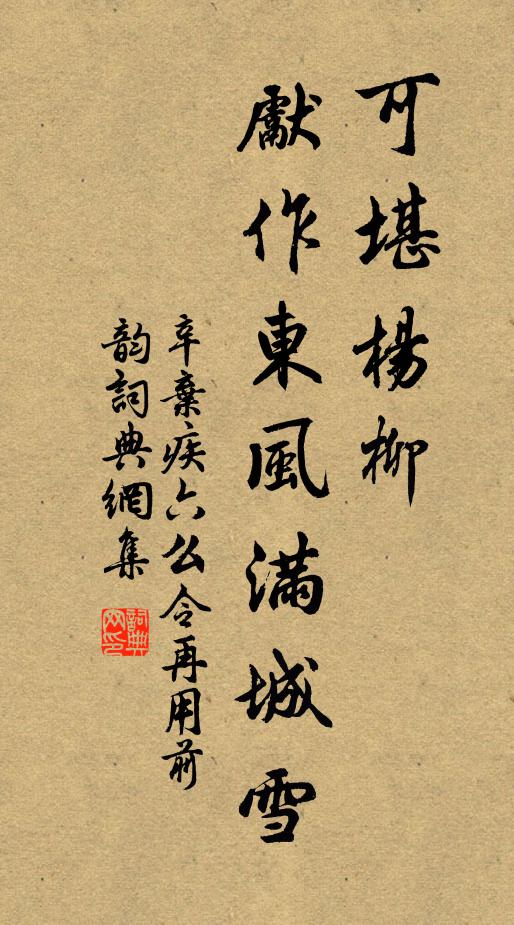 可堪楊柳
獻作東風滿城雪
辛棄疾六么令再用前
韵詞典網集
詞典
网印